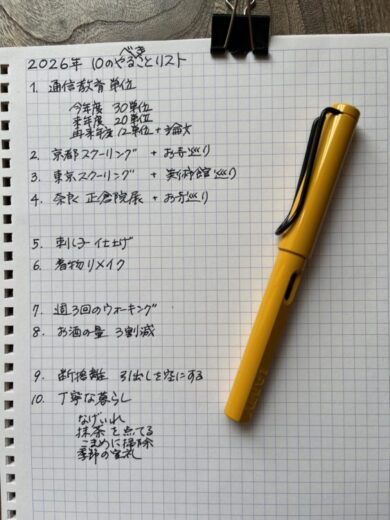 べき
2026年 10のやることリスト
1. 通信教育単位
今年度 30単位
来年度 20単位
再来年度 12単位+論文
2. 京都スクーリング + お寺巡り
3. 東京スクーリング + 美術館巡り
4. 奈良 正倉院展 + お寺巡り
5. 刺し子仕上げ
6. 着物リメイク
7. 週3回のウォーキング
8. お酒の量 3割減
9. 断捨離 引出しを空にする
10. 丁寧な暮らし
なげいれ
抹茶を点てる
こまめに掃除
季節の室礼
LAMY